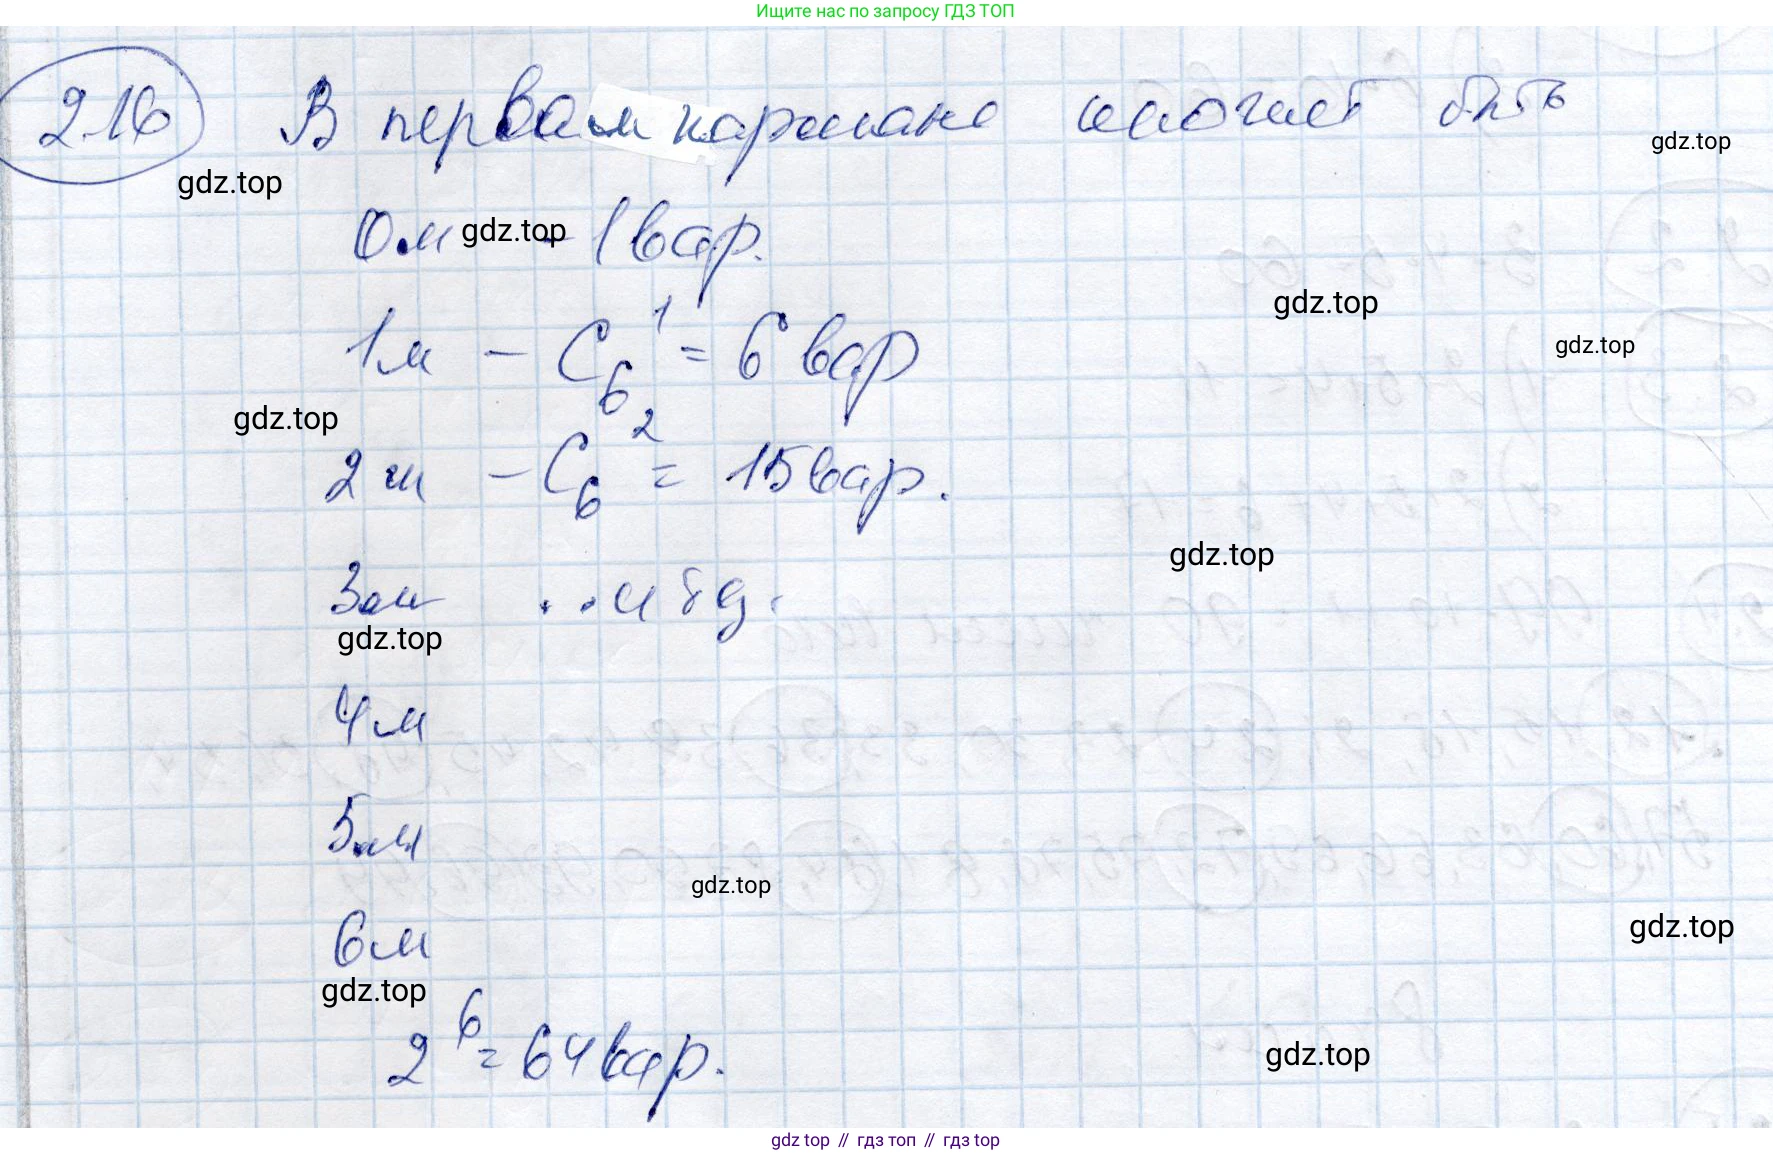 Ищите нас по запросу ГДЗ ТОП
2.16 В первом кармане может быть
gdz.top
gdz.top
0 м - 1 вар.
gdz.top
1 м - C₆¹ = 6 вар
gdz.top
gdz.top
gdz.top
2 м - C₆² = 15 вар.
gdz.top
3 м ... и т д.
gdz.top
4 м
5 м
gdz.top
6 м
gdz.top
gdz.top
2⁶ = 64 вар.
gdz.top
gdz top // гдз топ // гдз top